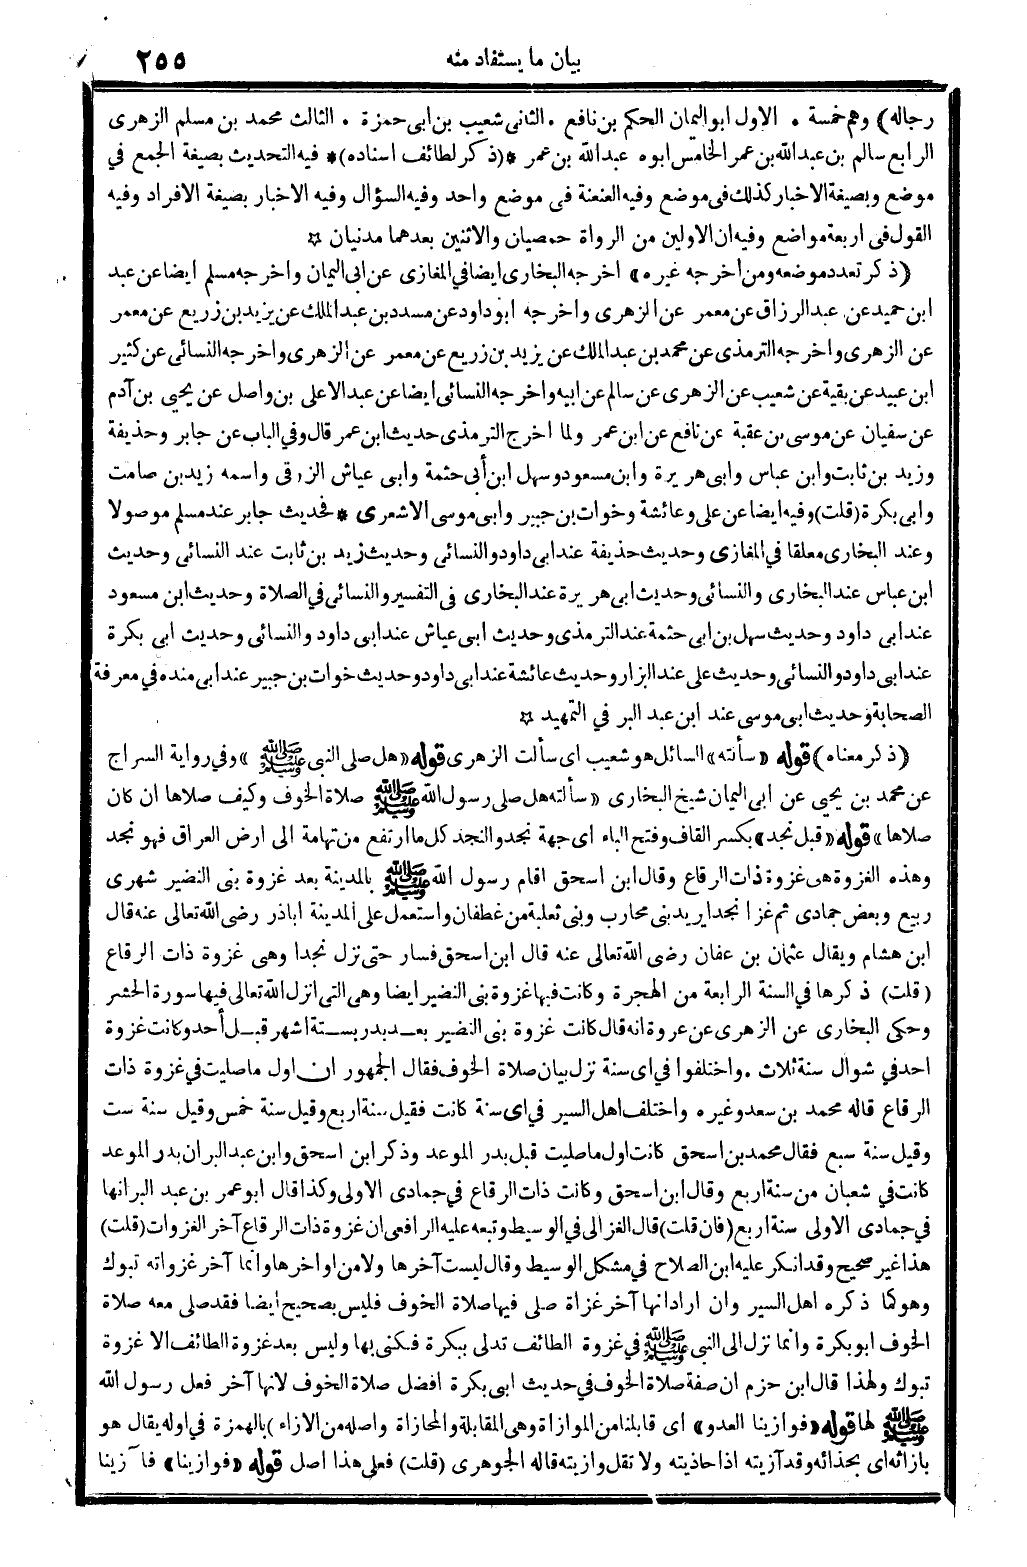 بيان ما يستفاد منه ٢٥٥
رجاله) وهم خمسة . الاول ابو اليمان الحكم بن نافع . الثانى شعيب بن ابى حمزة . الثالث محمد بن مسلم الزهرى
الرابع سالم بن عبدالله بن عمر الخامس ابوه عبدالله بن عمر *(ذكر لطائف اسناده)* فيه التحديث بصيغة الجمع في
موضع وبصيغة الاخبار كذلك فى موضع وفيه العنعنة فى موضع واحد وفيه السؤال وفيه الاخبار بصيغة الافراد وفيه
القول فى اربعة مواضع وفيه ان الاولين من الرواة حمصيان والاثنين بعدهما مدنيان ☆
(ذكر تعدد موضعه ومن اخرجه غيره) اخرجه البخارى ايضا في المغازى عن ابى اليمان واخرجه مسلم ايضا عن عبد
ابن حميد عن عبد الرزاق عن معمر عن الزهرى واخرجه ابو داود عن مسدد بن عبد الملك عن يزيد بن زريع عن معمر
عن الزهرى واخرجه الترمذى عن محمد بن عبد الملك عن يزيد بن زريع عن معمر عن الزهرى واخرجه النسائى عن كثير
ابن عبيد عن بقية عن شعيب عن الزهرى عن سالم عن ابيه واخرجه النسائى ايضا عن عبد الاعلى بن واصل عن يحيى بن آدم
عن سفيان عن موسى بن عقبة عن نافع عن ابن عمر ولما اخرج الترمذى حديث ابن عمر قال وفي الباب عن جابر وحذيفة
وزيد بن ثابت وابن عباس وابى هريرة وابن مسعود وسهل ابن أبى حثمة وابى عياش الزرقى واسمه زيد بن صامت
وابى بكرة (قلت) وفيه ايضا عن على وعائشة وخوات بن جبير وابى موسى الاشعرى * فحديث جابر عند مسلم موصولا
وعند البخارى معلقا في المغازى وحديث حذيفة عند ابى داود والنسائى وحديث زيد بن ثابت عند النسائى وحديث
ابن عباس عند البخارى والنسائى وحديث ابى هريرة عند البخارى فى التفسير والنسائى في الصلاة وحديث ابن مسعود
عند ابى داود وحديث سهل بن ابى حثمة عند الترمذى وحديث ابى عياش عند ابى داود والنسائى وحديث ابى بكرة
عند ابى داود والنسائى وحديث على عند البزار وحديث عائشة عند ابى داود وحديث خوات بن جبير عند ابى منده في معرفة
الصحابة وحديث ابى موسى عند ابن عبد البر في التمهيد ☆
(ذكر معناه) قوله «سألته» السائل هو شعيب اى سألت الزهرى قوله «هل صلى النبى ﷺ» وفي رواية السراج
عن محمد بن يحيى عن ابى اليمان شيخ البخارى «سألته هل صلى رسول الله ﷺ صلاة الخوف وكيف صلاها ان كان
صلاها» قوله «قبل نجد» بكسر القاف وفتح الباء اى جهة نجد والنجد كل ما ارتفع من تهامة الى ارض العراق فهو نجد
وهذه الغزوة هى غزوة ذات الرقاع وقال ابن اسحق اقام رسول الله ﷺ بالمدينة بعد غزوة بنى النضير شهرى
ربيع وبعض جمادى ثم غزا نجدا يريد بنى محارب وبنى ثعلبة من غطفان واستعمل على المدينة اباذر رضى الله تعالى عنه قال
ابن هشام ويقال عثمان بن عفان رضى الله تعالى عنه قال ابن اسحق فسار حتى نزل نجدا وهى غزوة ذات الرقاع
(قلت) ذكرها في السنة الرابعة من الهجرة وكانت فيها غزوة بنى النضير ايضا وهى التى انزل الله تعالى فيها سورة الحشر
وحكى البخارى عن الزهرى عن عروة انه قال كانت غزوة بنى النضير بعد بدر بستة اشهر قبل أحد وكانت غزوة
احد في شوال سنة ثلاث . واختلفوا في اى سنة نزل بيان صلاة الخوف فقال الجمهور ان اول ما صليت في غزوة ذات
الرقاع قاله محمد بن سعد وغيره واختلف اهل السير في اى سنة كانت فقيل سنة اربع وقيل سنة خمس وقيل سنة ست
وقيل سنة سبع فقال محمد بن اسحق كانت اول ما صليت قبل بدر الموعد وذكر ابن اسحق وابن عبد البر ان بدر الموعد
كانت في شعبان من سنة اربع وقال ابن اسحق وكانت ذات الرقاع في جمادى الاولى وكذا قال ابو عمر بن عبد البر انها
في جمادى الاولى سنة اربع (فان قلت) قال الغزالى في الوسيط وتبعه عليه الرافعى ان غزوة ذات الرقاع آخر الغزوات (قلت)
هذا غير صحيح وقد انكر عليه ابن الصلاح في مشكل الوسيط وقال ليست آخرها ولا من اواخرها وانما آخر غزواته تبوك
وهو كما ذكره اهل السير وان اراد انها آخر غزاة صلى فيها صلاة الخوف فليس بصحيح أيضا فقد صلى معه صلاة
الخوف ابو بكرة وانما نزل الى النبى ﷺ في غزوة الطائف تدلى ببكرة فكنى بها وليس بعد غزوة الطائف الا غزوة
تبوك ولهذا قال ابن حزم ان صفة صلاة الخوف في حديث ابى بكرة افضل صلاة الخوف لانها آخر فعل رسول الله
ﷺ لها قوله «فوازينا العدو» اى قابلنا من الموازاة وهى المقابلة والمحاذاة واصله من الازاء) بالهمزة في اوله يقال هو
بازائه اى بحذائه وقد آزيته اذا حاذيته ولا تقل وازيته قاله الجوهرى (قلت) فعلى هذا اصل قوله «فوازينا» فآزينا